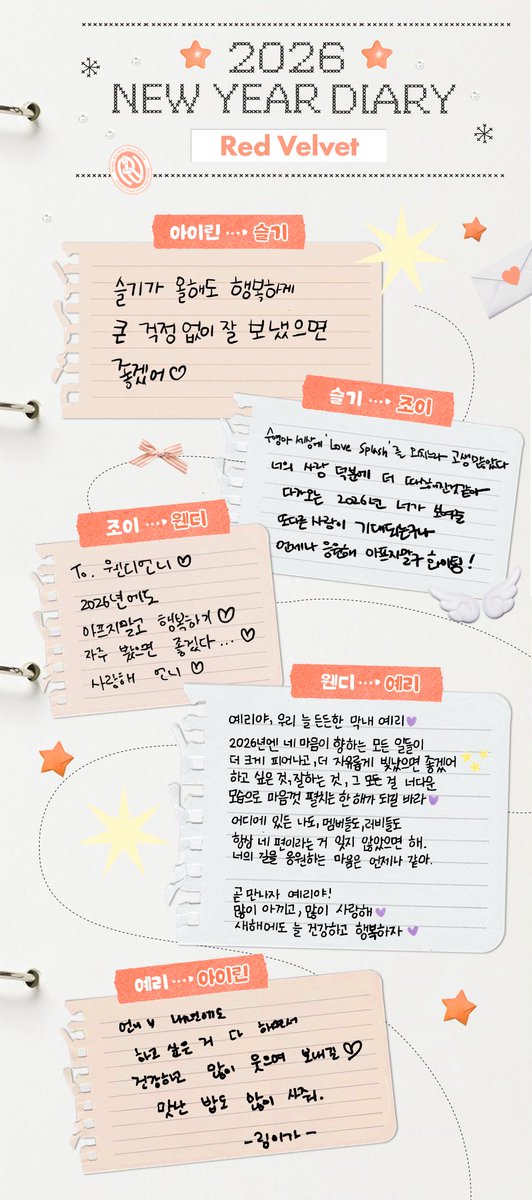 2026
NEW YEAR DIARY
Red Velvet
아이린 ····→ 슬기
슬기가 올해도 행복하게
큰 걱정 없이 잘 보냈으면
좋겠어♡
슬기 ····→ 조이
수영아 세상에 'Love Splash'를 외치느라 고생많았다
너의 사랑 덕분에 더 따뜻해진것같아
다가오는 2026년 너가 보여줄
또다른 사랑이 기대되는구나
언제나 응원해 아프지말구 화이팅!
조이 ····→ 웬디
To. 웬디언니♡
2026년에도
아프지말고 행복하기♡
자주 봤으면 좋겠다...♡
사랑해 언니♡
웬디 ····→ 예리
예리야, 우리 늘 든든한 막내 예리💜
2026년엔 네 마음이 향하는 모든 일들이
더 크게 피어나고, 더 자유롭게 빛났으면 좋겠어
하고 싶은 것, 잘하는 것, 그 모든 걸 너다운
모습으로 마음껏 펼치는 한 해가 되길 바라💜
어디에 있든 나도, 멤버들도, 러비들도
항상 네 편이라는 거 잊지 않았으면 해.
너의 길을 응원하는 마음은 언제나 같아.
곧 만나자 예리야!
많이 아끼고, 많이 사랑해💜
새해에도 늘 건강하고 행복하자💜
예리 ····→ 아이린
언니 내년에도
하고 싶은 거 다 하면서
건강하고 많이 웃으며 보내길♡
맛난 밥도 많이 사줘.
-림이가-